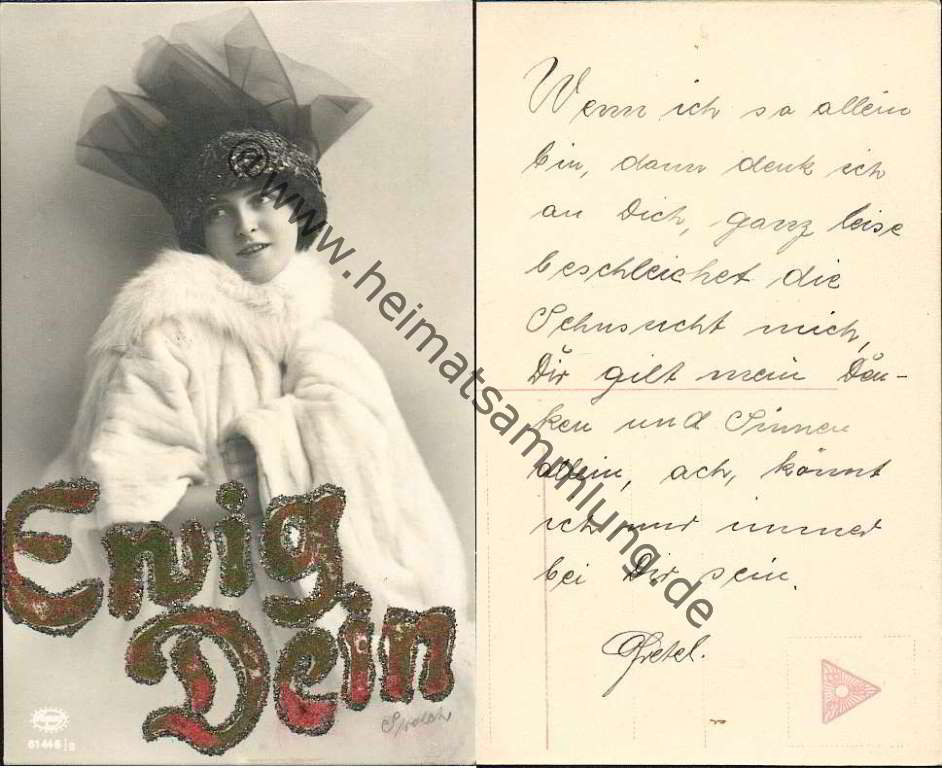 Ewig
Dein
61446/3
Wenn ich so allein
bin, dann denk ich
an Dich, ganz leise
beschleichet die
Sehnsucht mich,
Dir gilt mein Den-
ken und Sinnen
allein, ach, könnt
ich nur immer
bei Dir sein.
Gretel.
©www.heimatsammlung.de